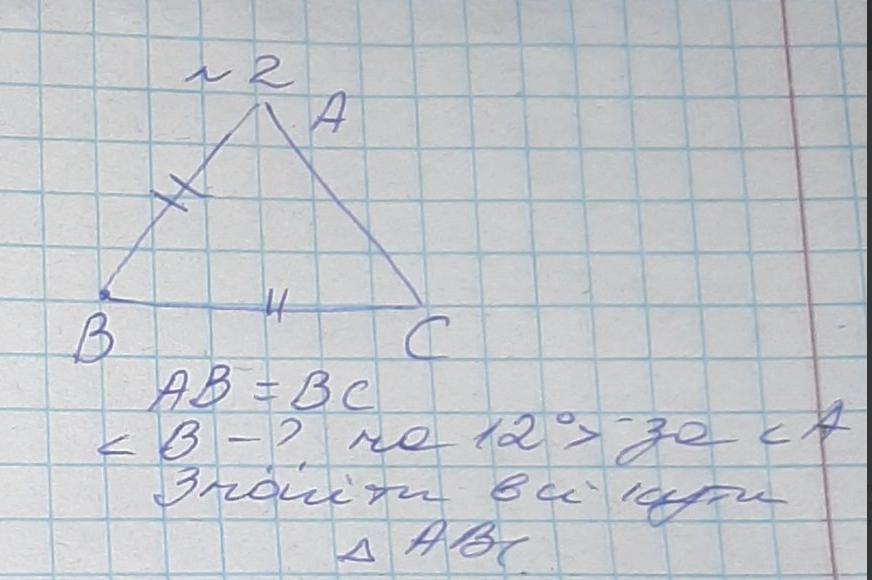 ~ 2
A
B
C
AB = BC
< B – ? на 12° > за < A
Знайти всі кути
Δ ABC